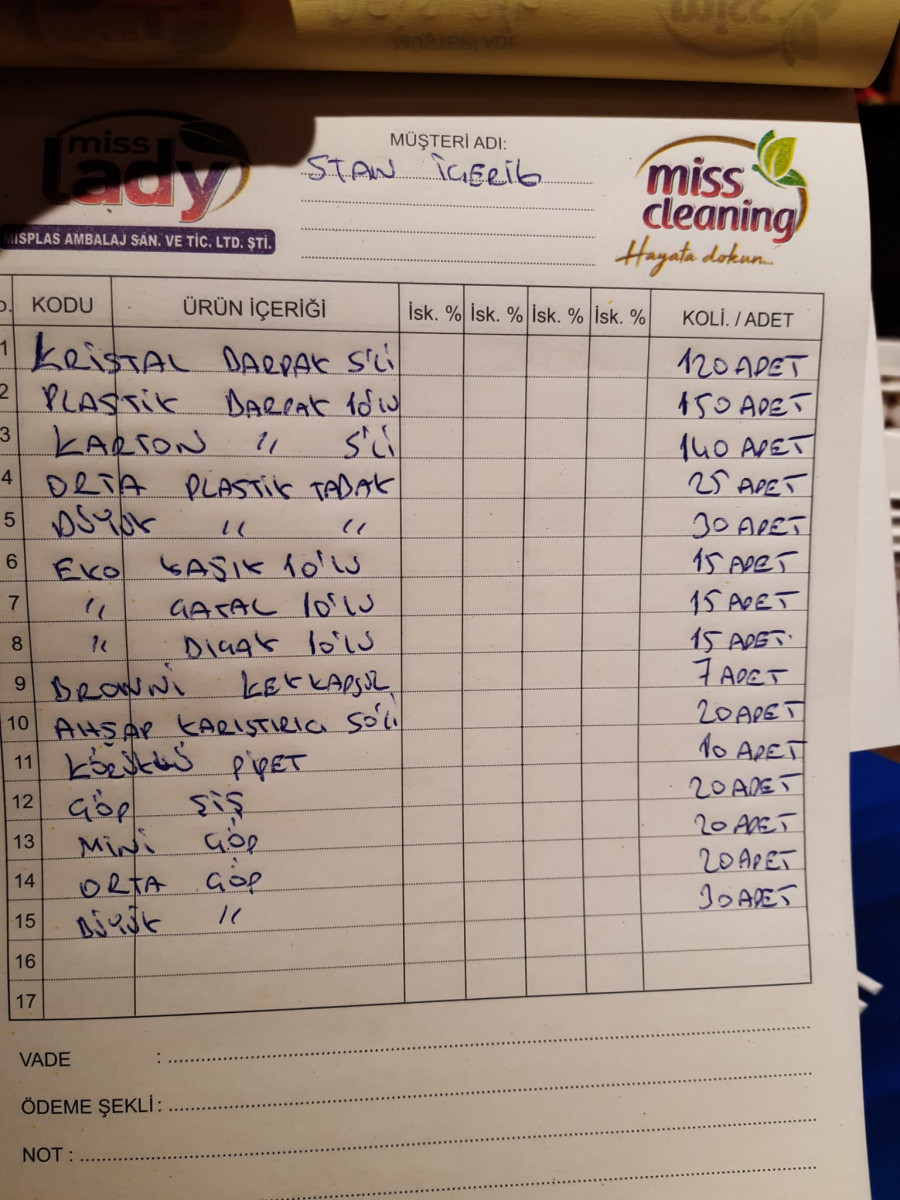 miss
MÜŞTERİ ADI
miss lady
MİSPLAS AMBALAJ SAN. VE TİC. LTD. ŞTİ.
MÜŞTERİ ADI:
STAN İÇERİK
miss cleaning
Hayata dokun...
o. KODU ÜRÜN İÇERİĞİ İsk. % İsk. % İsk. % İsk. % KOLİ. / ADET
1 KRİSTAL BARDAK 5'Lİ 120 ADET
2 PLASTİK BARDAK 10'LU 150 ADET
3 KARTON " 5'Lİ 140 ADET
4 ORTA PLASTİK TABAK 25 ADET
5 BÜYÜK " " 30 ADET
6 EKO KAŞIK 10'LU 15 ADET
7 " ÇATAL 10'LU 15 ADET
8 " BIÇAK 10'LU 15 ADET
9 BROWNİ KEK KAPSÜL 7 ADET
10 AHŞAP KARIŞTIRICI 50'Lİ 20 ADET
11 KÖRÜKLÜ PİPET 10 ADET
12 ÇÖP ŞİŞ 20 ADET
13 MİNİ ÇÖP 20 ADET
14 ORTA ÇÖP 20 ADET
15 BÜYÜK " 30 ADET
16
17
VADE :
ÖDEME ŞEKLİ :
NOT :